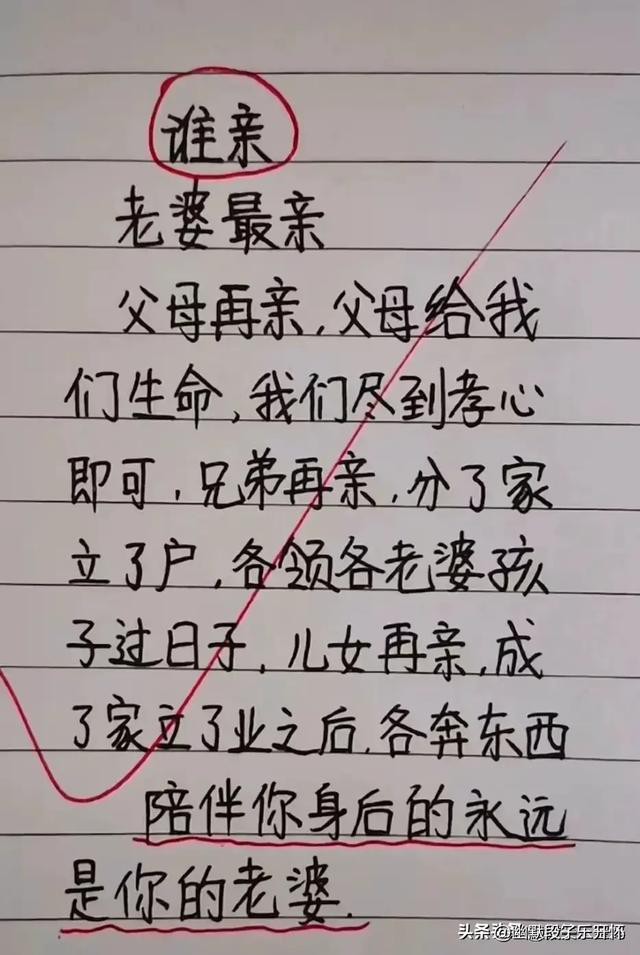 谁亲
老婆最亲
父母再亲,父母给我
们生命,我们尽到孝心
即可,兄弟再亲,分了家
立了户,各领各老婆孩
子过日子,儿女再亲,成
了家立了业之后.各奔东西
陪伴你身后的永远
是你的老婆.
头条@幽默段子乐开怀